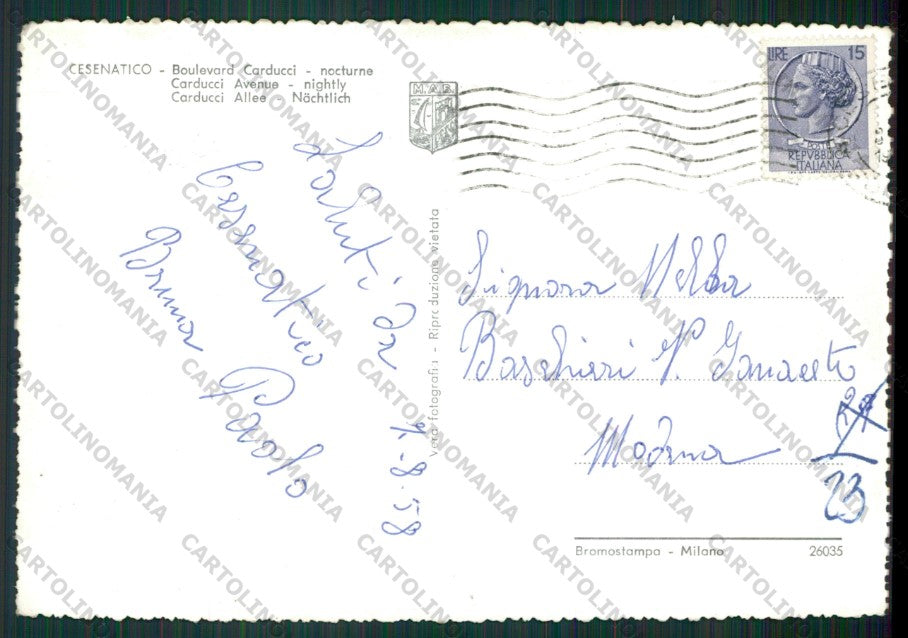 CESENATICO - Boulevard Carducci - nocturne
Carducci Avenue - nightly
Carducci Allee - Nächtlich
M.A.R.
LIRE 15
POSTE
REPVBBLICA
ITALIANA
Saluti da
Cesenatico
Bruna Paolo
7-8-58
Vera fotografia - Riproduzione vietata
Signora Nella
Baschieri V.
Modena
23
Bromostampa - Milano 26035
CARTOLINOMANIA